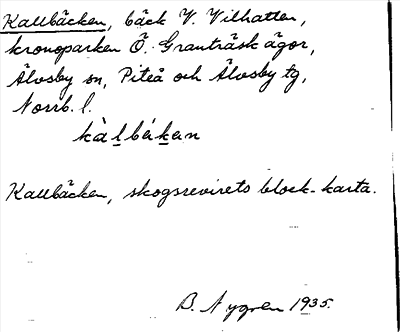 Kallbäcken, bäck V. Vilhatten,
kronoparken Ö. Granträsk ägor,
Älvsby sn, Piteå och Älvsby tg,
Norrb. l.
Kallbäcken, skogsrevirets block-karta.
B. Nygren 1935.